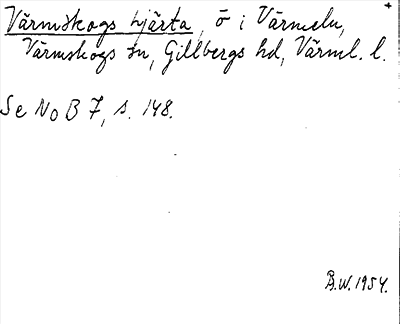 Värmskogs hjärta, ö i Värmeln,
Värmskogs sn, Gillbergs hd, Värml. l.
Se NoB 7, s. 148.
B.W. 1954.